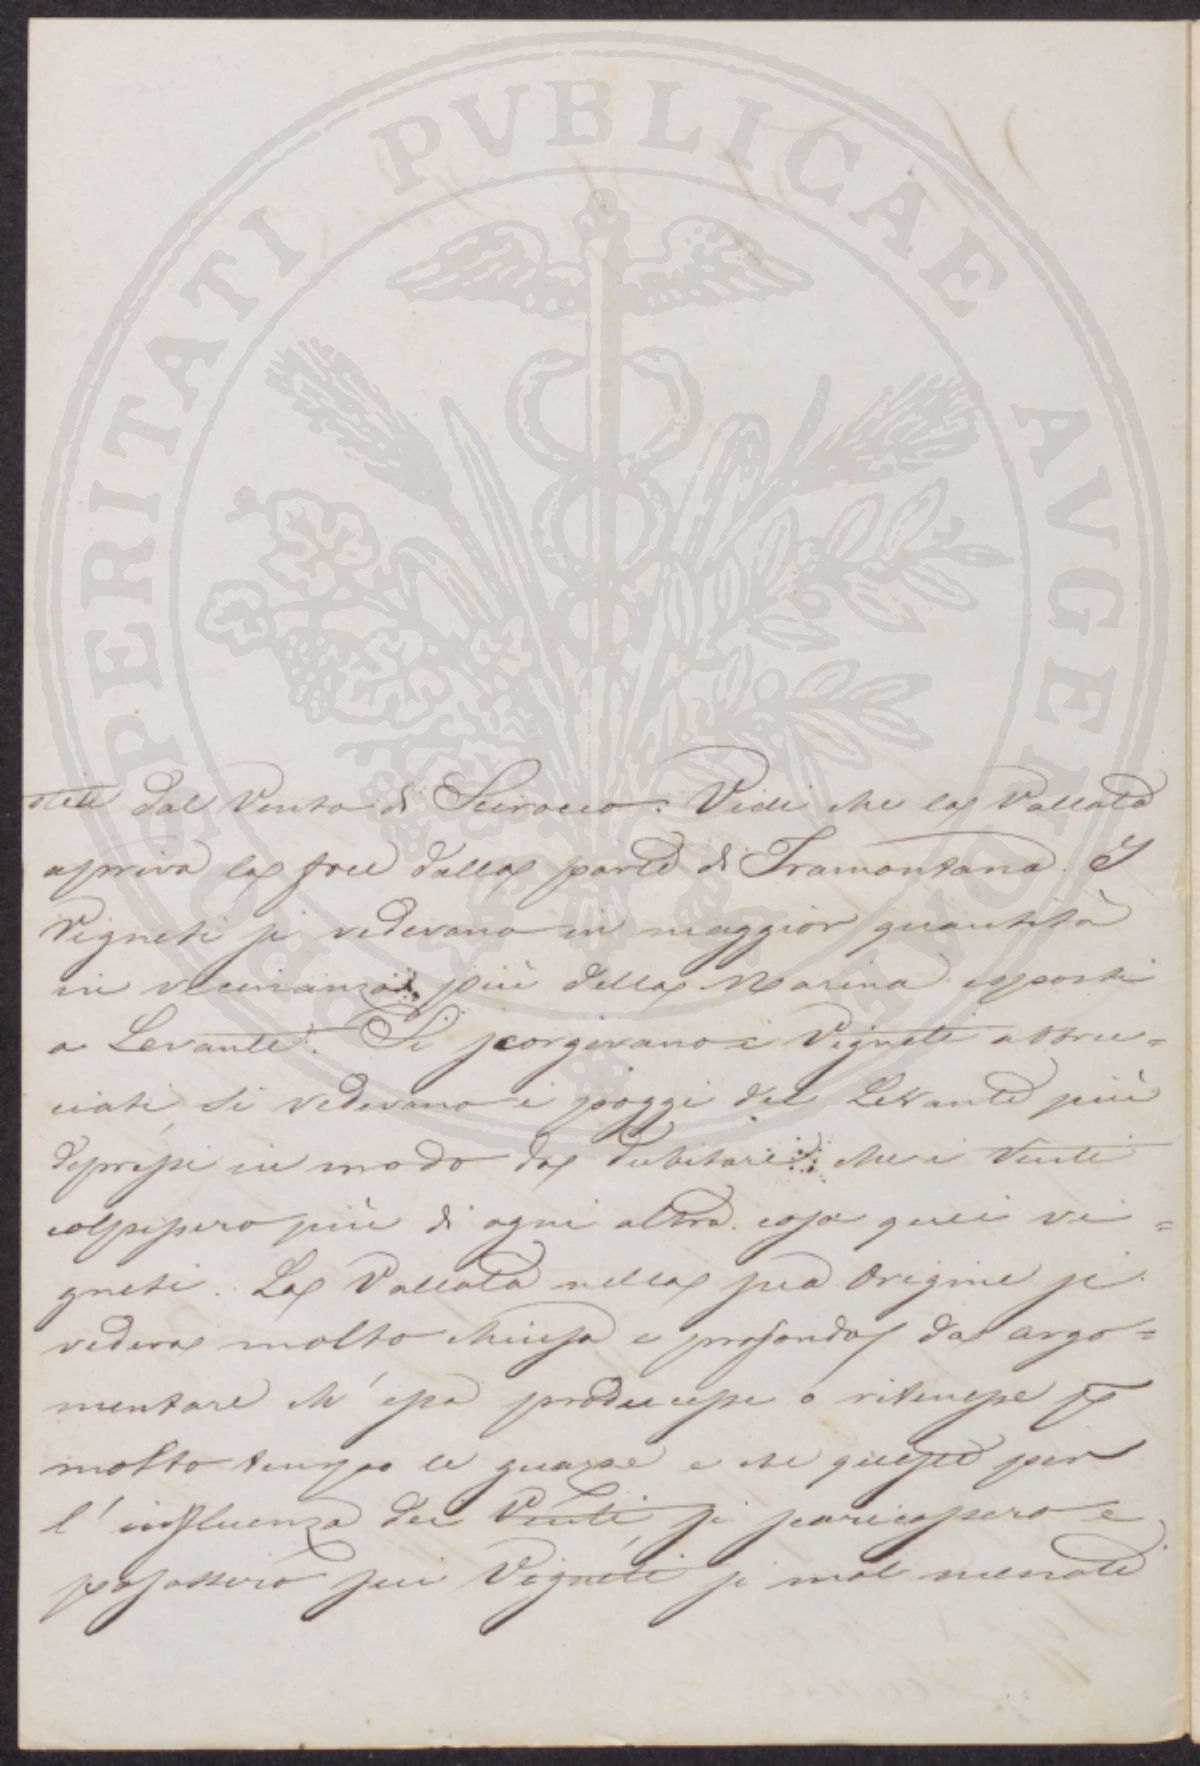 PROSPERITATI PVBLICAE AVGENDAE
dal Vento di Scirocco. Vidi che la Vallata
apriva la foce dalla parte di Tramontana. I
Vigneti si vedevano in maggior quantità
in vicinanza più della Marina esposti
a Levante. Si scorgevano i Vigneti abbru=
ciati, si vedevano i poggi del Levante più
depressi in modo da dubitare che i Venti
colpissero più di ogni altra cosa quei vi=
gneti. La Vallata nella sua Origine si
vedeva molto chiusa e profonda da argo=
mentare ch'essa producesse o ritenesse p
molto tempo le guazze e che queste per
l'influenza dei Venti si scaricassero e
posassero sui Vigneti sì mal menati